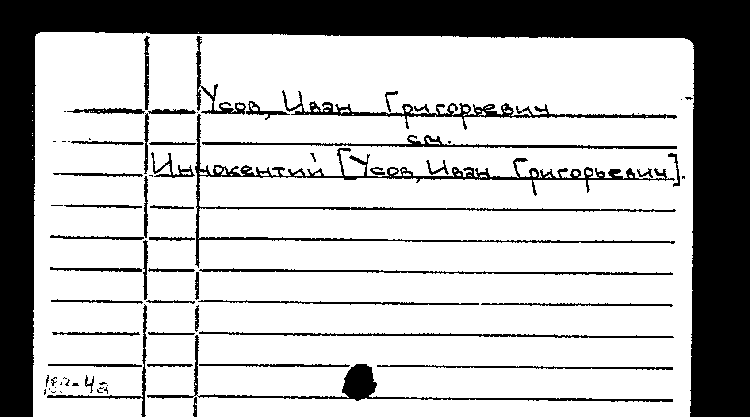 Усов, Иван Григорьевич
см.
Иннокентий [Усов, Иван Григорьевич].